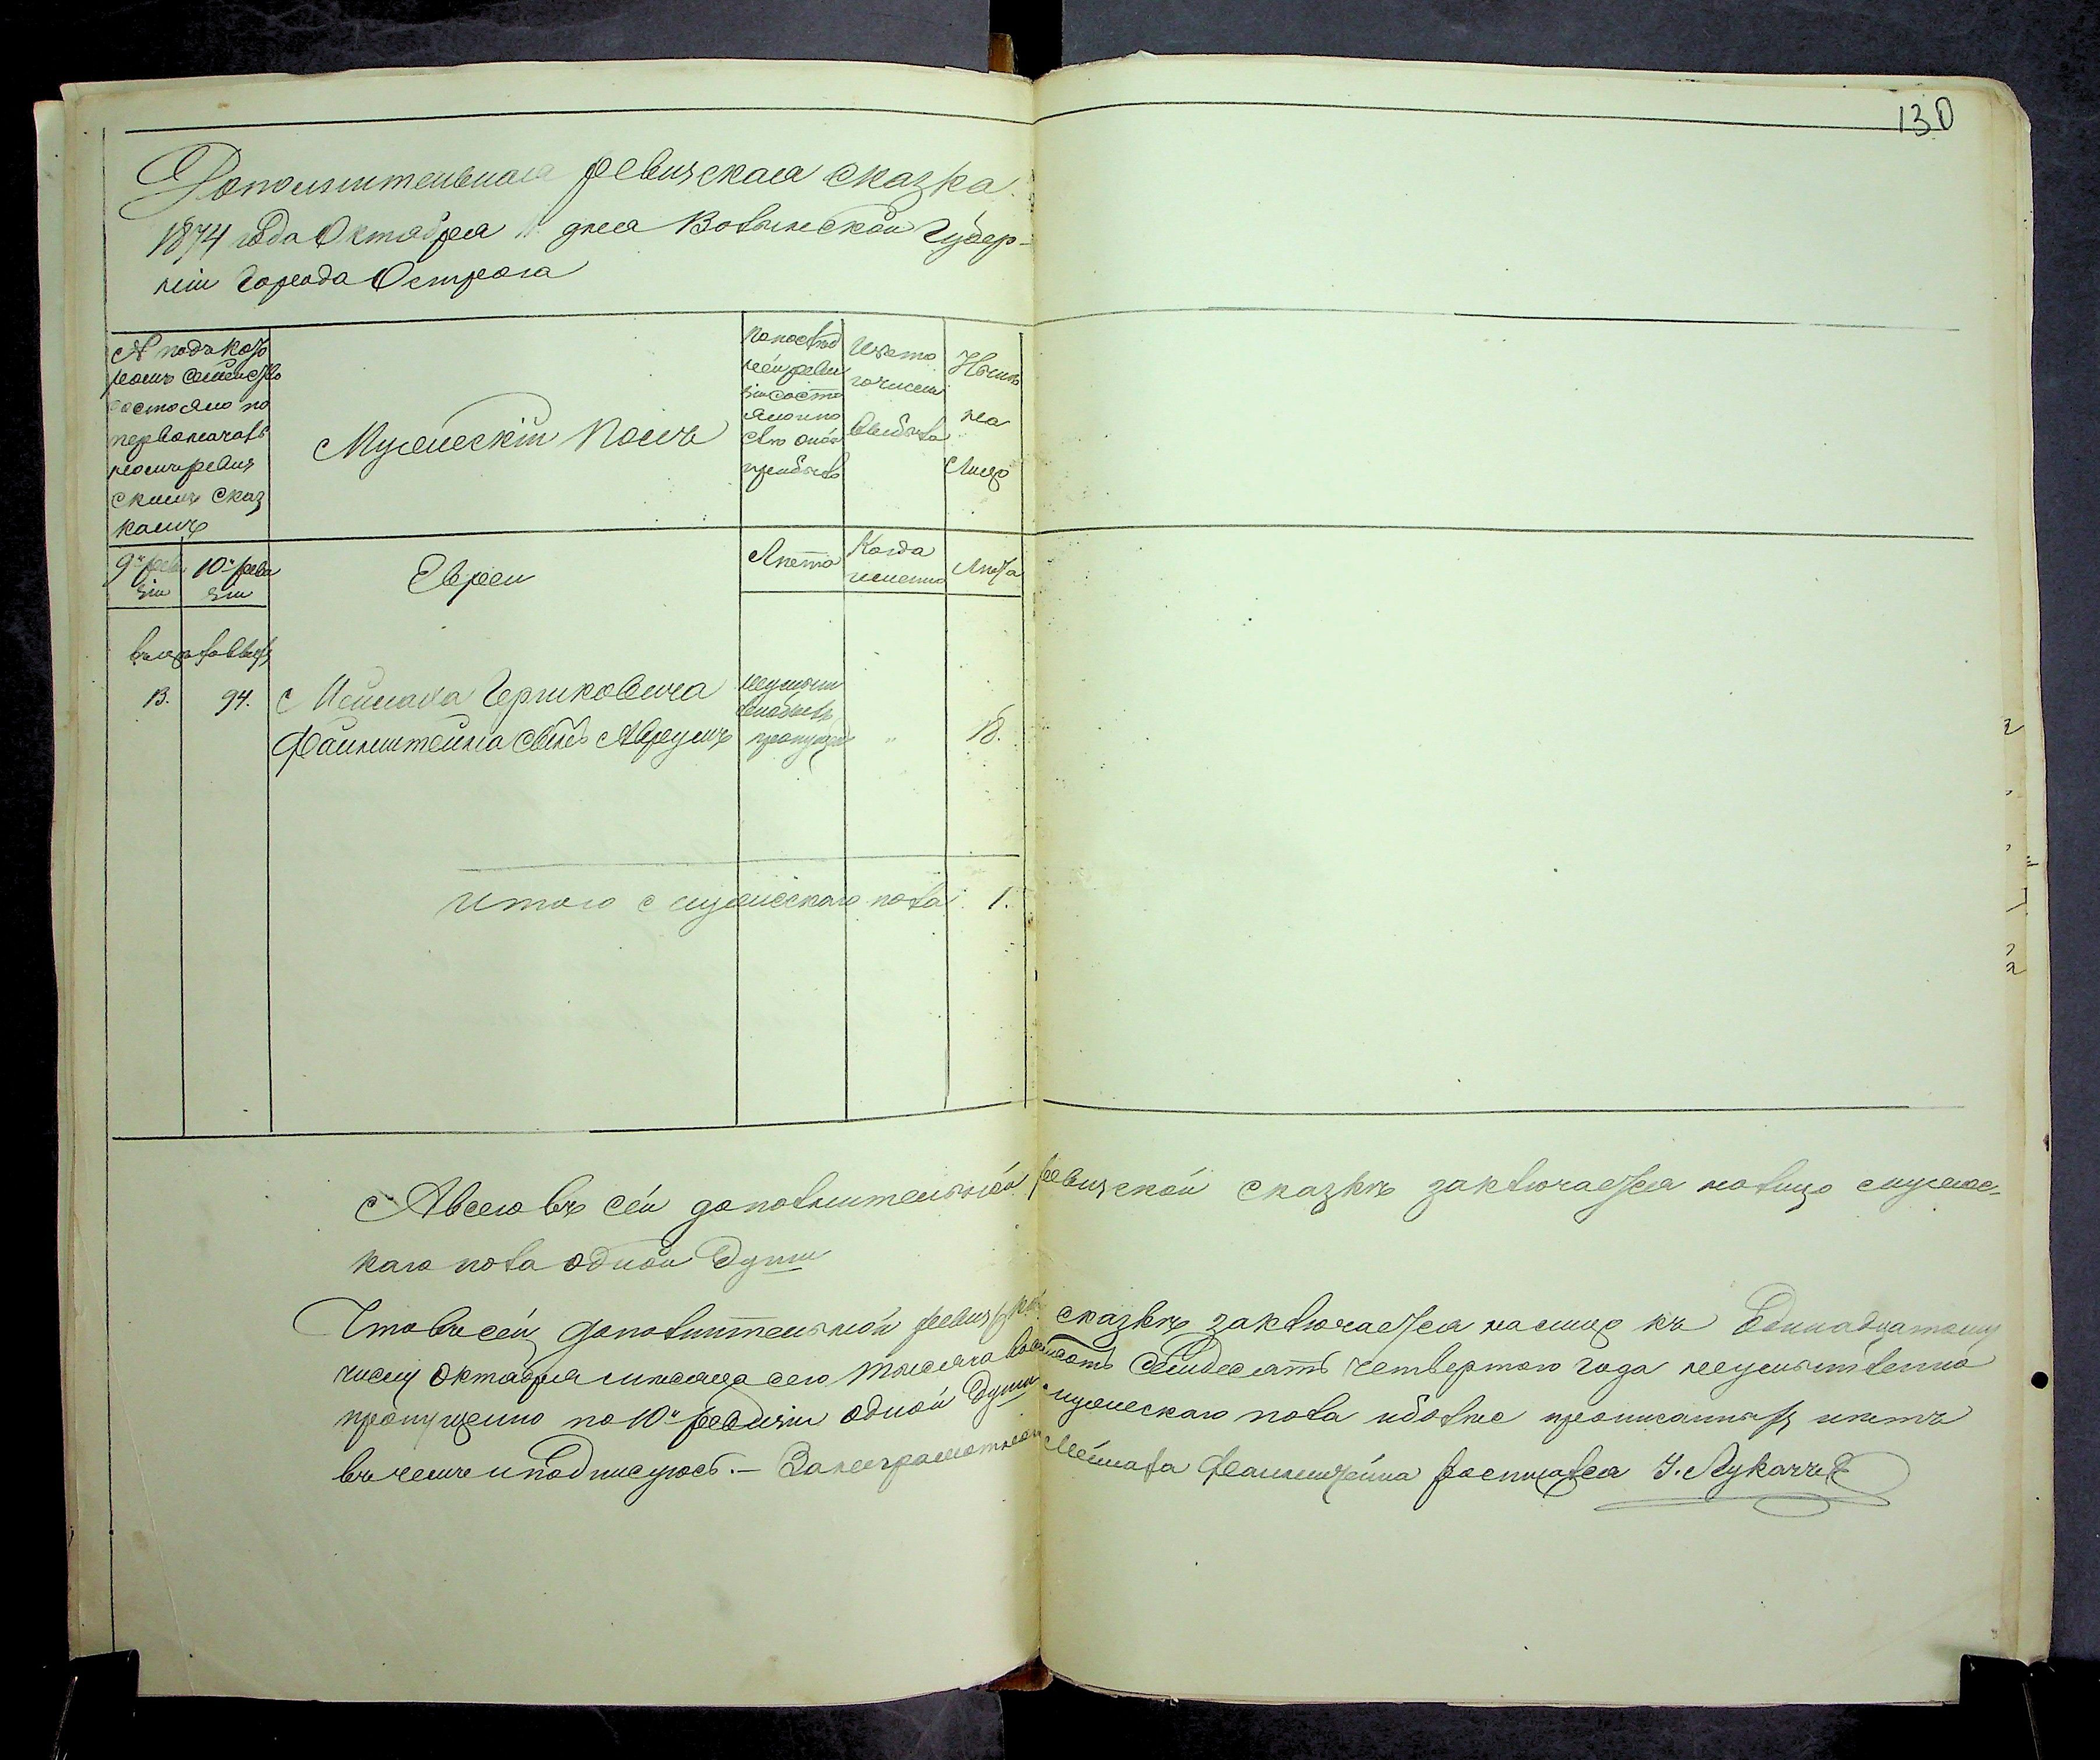 130
Дополнительная ревизская сказка
1874 года Октября 11 дня Волынской Губер-
ніи Города Острога
№ подъ кото
рымъ семейство
состояло по
первоначаль
нымъ ревиз
скимъ сказ
камъ
Мужескій полъ
По послѣд
ней реви
зіи состо
яло и по
слѣ оной
прибыло
Изъ то
го числа
выбыло
Нынѣ
на
лицо
9й реви
зіи
10й реви
зіи
Евреи
Лѣта
Когда
именно
Лѣта
13.
94.
Мейлаха Гершковича
Файнштейна сынъ Аврумъ
неумыш
пропущен
"
18.
Итого мужескаго пола 1.
А всего въ сей дополнительной ревизской сказкѣ заключается на лицо мужес-
каго пола одной души
Что въ сей дополнительной ревизской сказкѣ заключается на лицо къ Единадцатому
числу октября мѣсяца сего тысяча восемсотъ семидесятъ четвертого года неумышленно
пропущенно по 10й ревизіи одной души мужескаго пола и болѣе прописанныхъ нѣтъ
въ чемъ и подписуюсь. - За неграмотнаго Мейлаха Файнштейна росписался